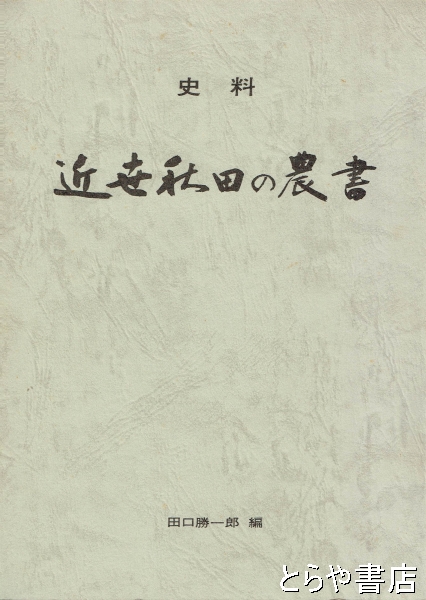 史料
近世秋田の農書
田口勝一郎 編
とらや書店